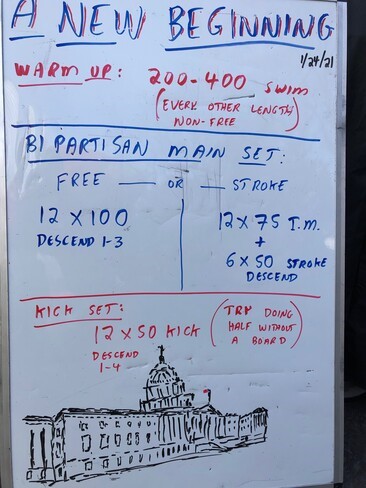 A NEW BEGINNING
1/24/21
WARM UP: 200-400 SWIM
(EVERY OTHER LENGTH
NON-FREE)
BI PARTISAN MAIN SET:
FREE — OR — STROKE
12 X 100
DESCEND 1-3
12 X 75 I.M.
+
6 X 50 STROKE
DESCEND
KICK SET:
12 X 50 KICK
DESCEND
1-4
(TRY DOING
HALF WITHOUT
A BOARD)